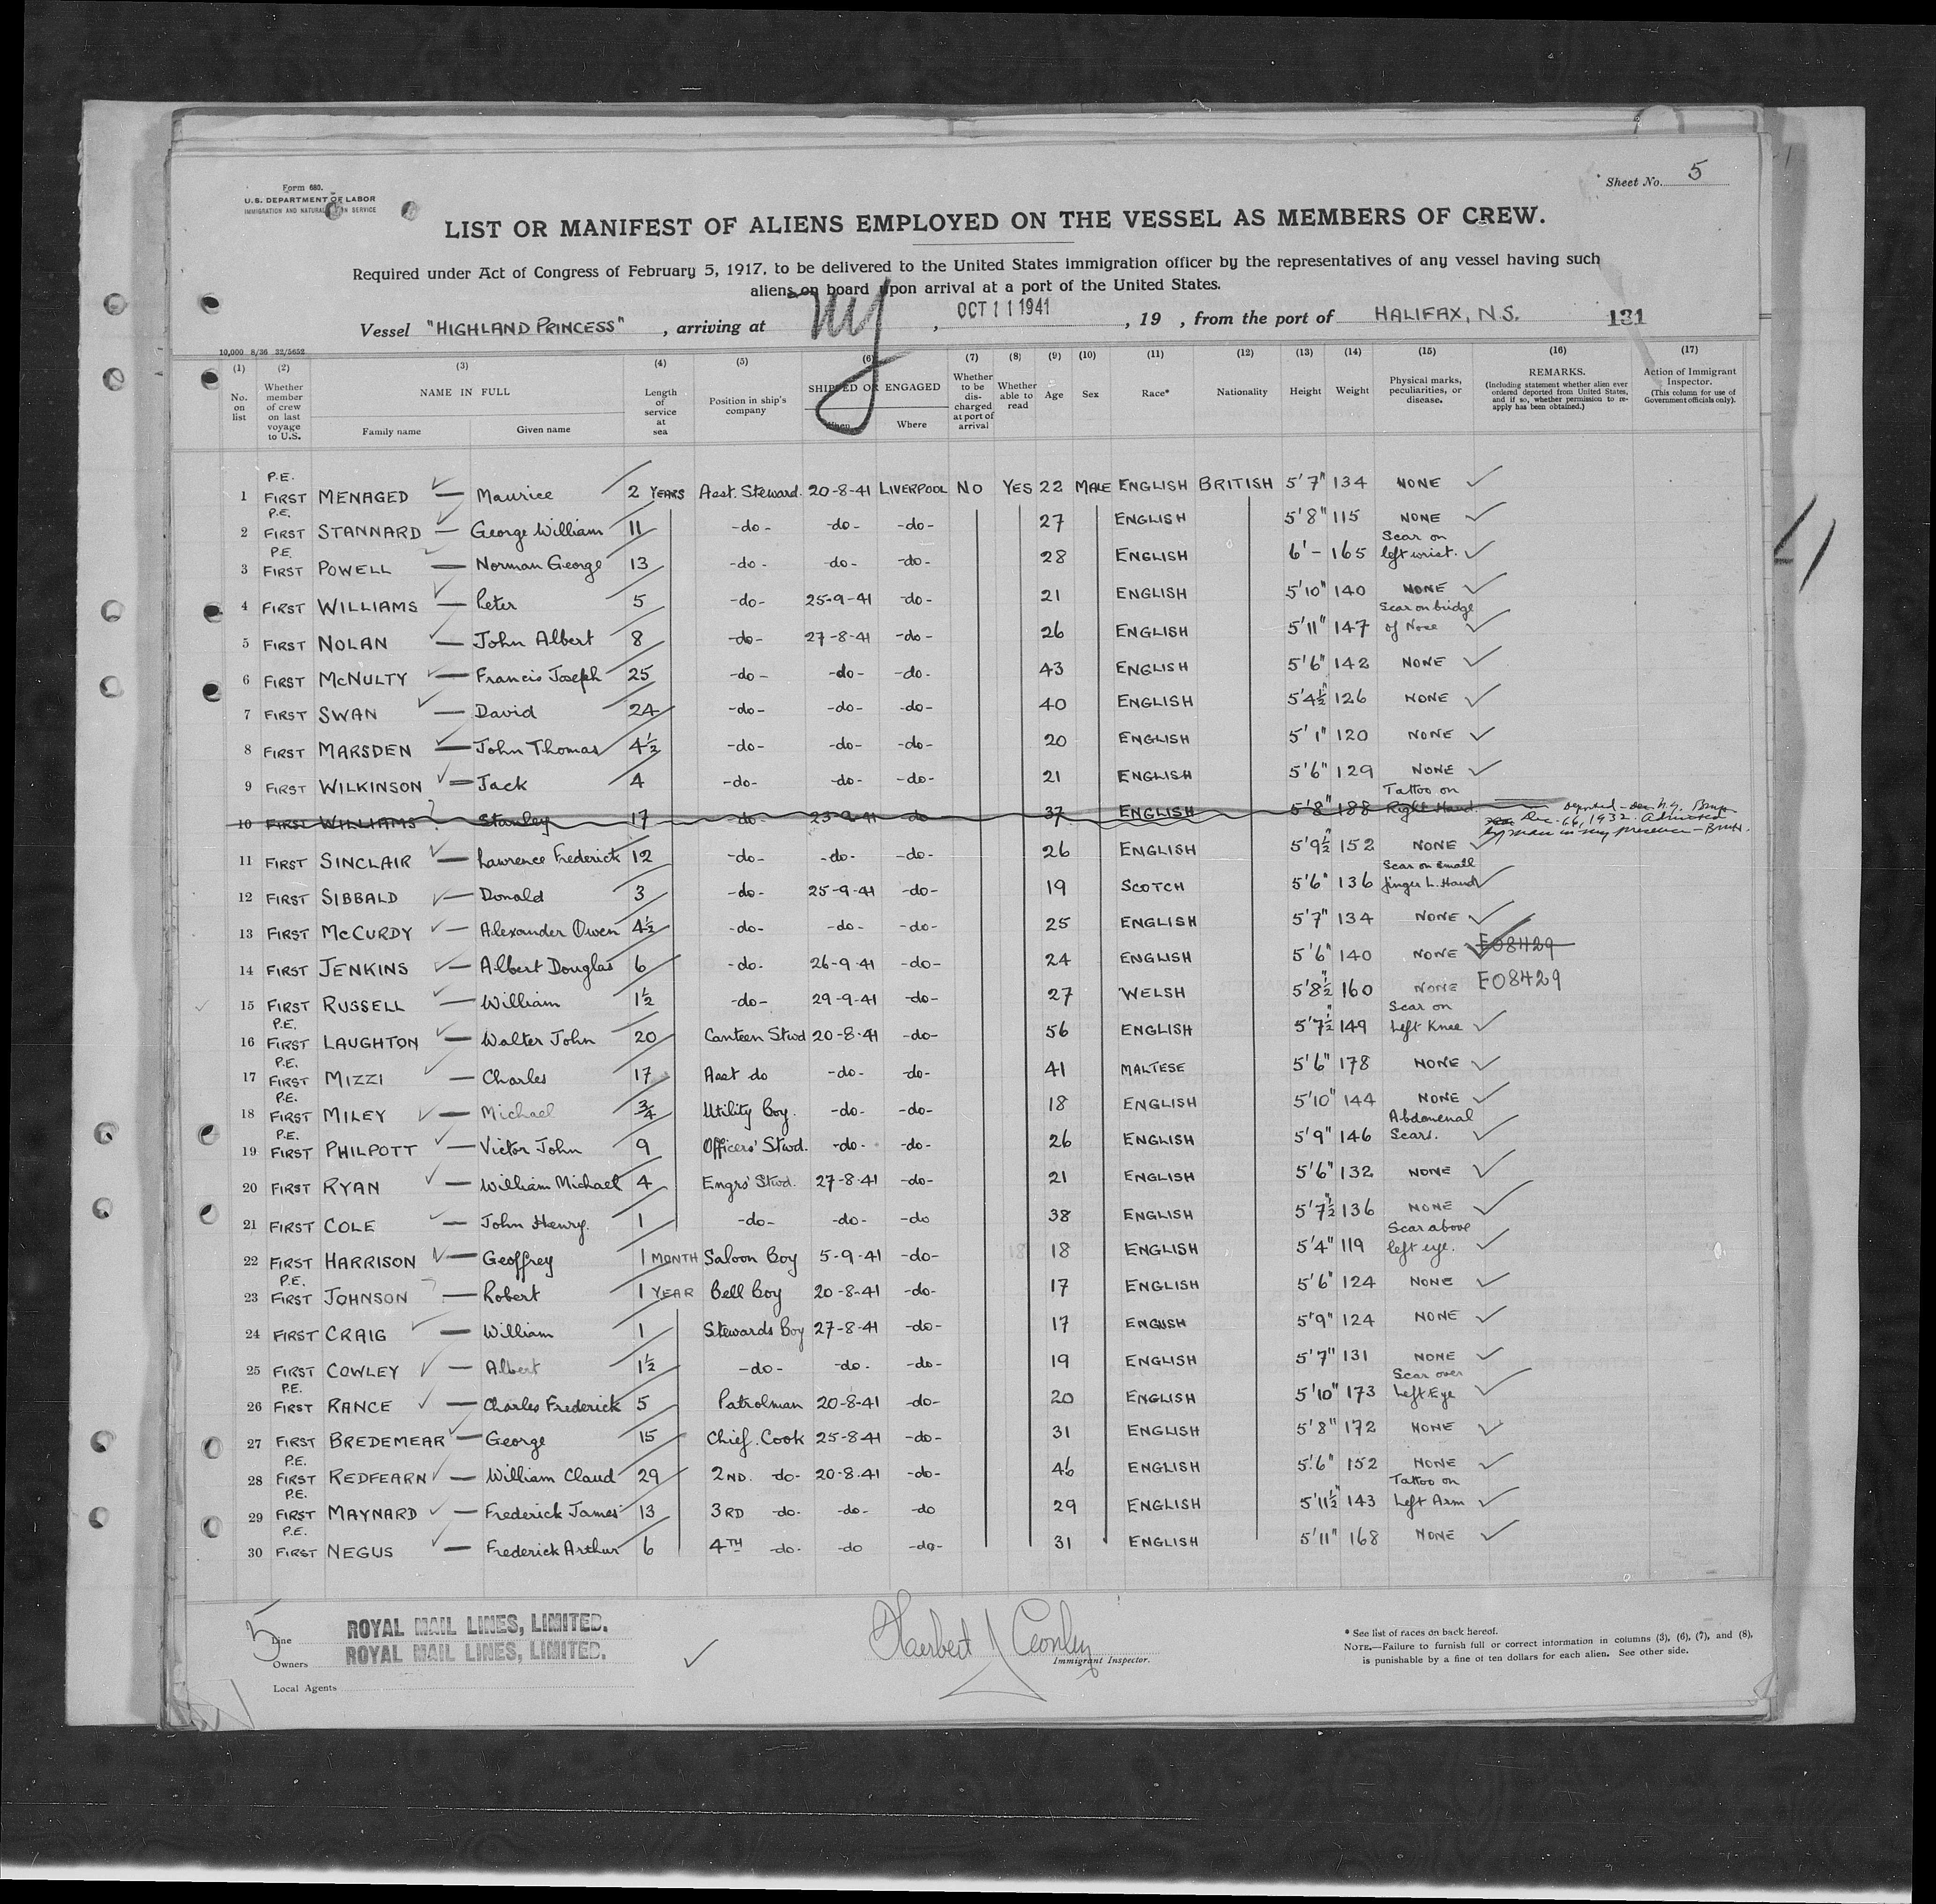 Form 680.
U.S. DEPARTMENT OF LABOR
IMMIGRATION AND NATURALIZATION SERVICE
Sheet No. 5
LIST OR MANIFEST OF ALIENS EMPLOYED ON THE VESSEL AS MEMBERS OF CREW.
Required under Act of Congress of February 5, 1917, to be delivered to the United States immigration officer by the representatives of any vessel having such
aliens on board upon arrival at a port of the United States.
Vessel "HIGHLAND PRINCESS" , arriving at NY , OCT 11 1941 , 19 , from the port of HALIFAX, N.S. 131
10,000 8/36 32/5652
(1) (2) (3) (4) (5) (6) (7) (8) (9) (10) (11) (12) (13) (14) (15) (16) (17)
No. on list Whether member of crew on last voyage to U.S. NAME IN FULL Family name Given name Length of service at sea Position in ship's company SHIPPED OR ENGAGED When Where Whether to be discharged at port of arrival Whether able to read Age Sex Race* Nationality Height Weight Physical marks, peculiarities, or disease. REMARKS. (Including statement whether alien ever ordered deported from United States, and if so, whether permission to reapply has been obtained.) Action of Immigrant Inspector. (This column for use of Government officials only).
1 P.E. FIRST MENAGED — Maurice 2 YEARS Asst. Steward. 20-8-41 LIVERPOOL NO YES 22 MALE ENGLISH BRITISH 5'7" 134 NONE
2 P.E. FIRST STANNARD — George William 11 -do- -do- -do- 27 ENGLISH 5'8" 115 NONE
3 P.E. FIRST POWELL — Norman George 13 -do- -do- -do- 28 ENGLISH 6'- 165 Scar on left wrist.
4 FIRST WILLIAMS — Peter 5 -do- 25-9-41 -do- 21 ENGLISH 5'10" 140 NONE
5 FIRST NOLAN — John Albert 8 -do- 27-8-41 -do- 26 ENGLISH 5'11" 147 Scar on bridge of Nose
6 FIRST McNULTY — Francis Joseph 25 -do- -do- -do- 43 ENGLISH 5'6" 142 NONE
7 FIRST SWAN — David 24 -do- -do- -do- 40 ENGLISH 5'4½" 126 NONE
8 FIRST MARSDEN — John Thomas 4½ -do- -do- -do- 20 ENGLISH 5'1" 120 NONE
9 FIRST WILKINSON — Jack 4 -do- -do- -do- 21 ENGLISH 5'6" 129 NONE
10 FIRST WILLIAMS Stanley 17 -do- 23-9-41 -do- 37 ENGLISH 5'8" 188 Tattoo on Right Hand. Deported N.Y. Dec. 1932. Admitted by man in my presence
11 FIRST SINCLAIR — Lawrence Frederick 12 -do- -do- -do- 26 ENGLISH 5'9½" 152 NONE
12 FIRST SIBBALD — Donald 3 -do- 25-9-41 -do- 19 SCOTCH 5'6" 136 Scar on small finger L. Hand
13 FIRST McCURDY — Alexander Owen 4½ -do- -do- -do- 25 ENGLISH 5'7" 134 NONE
14 FIRST JENKINS — Albert Douglas 6 -do- 26-9-41 -do- 24 ENGLISH 5'6" 140 NONE E08429
15 FIRST RUSSELL — William 1½ -do- 29-9-41 -do- 27 WELSH 5'8½" 160 NONE E08429
16 P.E. FIRST LAUGHTON — Walter John 20 Canteen Stwd 20-8-41 -do- 56 ENGLISH 5'7½" 149 Scar on Left Knee
17 P.E. FIRST MIZZI — Charles 17 Asst do -do- -do- 41 MALTESE 5'6" 178 NONE
18 P.E. FIRST MILEY — Michael ¾ Utility Boy. -do- -do- 18 ENGLISH 5'10" 144 NONE
19 P.E. FIRST PHILPOTT — Victor John 9 Officers' Stwd. -do- -do- 26 ENGLISH 5'9" 146 Abdomenal Scars.
20 FIRST RYAN — William Michael 4 Engrs' Stwd. 27-8-41 -do- 21 ENGLISH 5'6" 132 NONE
21 FIRST COLE — John Henry. 1 -do- -do- -do 38 ENGLISH 5'7½" 136 NONE
22 FIRST HARRISON — Geoffrey 1 MONTH Saloon Boy 5-9-41 -do- 18 ENGLISH 5'4" 119 Scar above left eye.
23 P.E. FIRST JOHNSON — Robert 1 YEAR Bell Boy 20-8-41 -do- 17 ENGLISH 5'6" 124 NONE
24 FIRST CRAIG — William 1 Stewards Boy 27-8-41 -do- 17 ENGLISH 5'9" 124 NONE
25 FIRST COWLEY — Albert 1½ -do- -do- -do- 19 ENGLISH 5'7" 131 NONE
26 P.E. FIRST RANCE — Charles Frederick 5 Patrolman 20-8-41 -do- 20 ENGLISH 5'10" 173 Scar over Left Eye
27 FIRST BREDEMEAR — George 15 Chief Cook 25-8-41 -do- 31 ENGLISH 5'8" 172 NONE
28 P.E. FIRST REDFEARN — William Claud 29 2ND. -do- 20-8-41 -do- 46 ENGLISH 5'6" 152 NONE
29 P.E. FIRST MAYNARD — Frederick James 13 3RD -do- -do- -do 29 ENGLISH 5'11½" 143 Tattoo on Left Arm
30 P.E. FIRST NEGUS — Frederick Arthur 6 4TH -do- -do -do- 31 ENGLISH 5'11" 168 NONE
5
Line ROYAL MAIL LINES, LIMITED.
Owners ROYAL MAIL LINES, LIMITED.
Local Agents
Herbert J
Immigrant Inspector.
* See list of races on back hereof.
NOTE.—Failure to furnish full or correct information in columns (3), (6), (7), and (8),
is punishable by a fine of ten dollars for each alien. See other side.